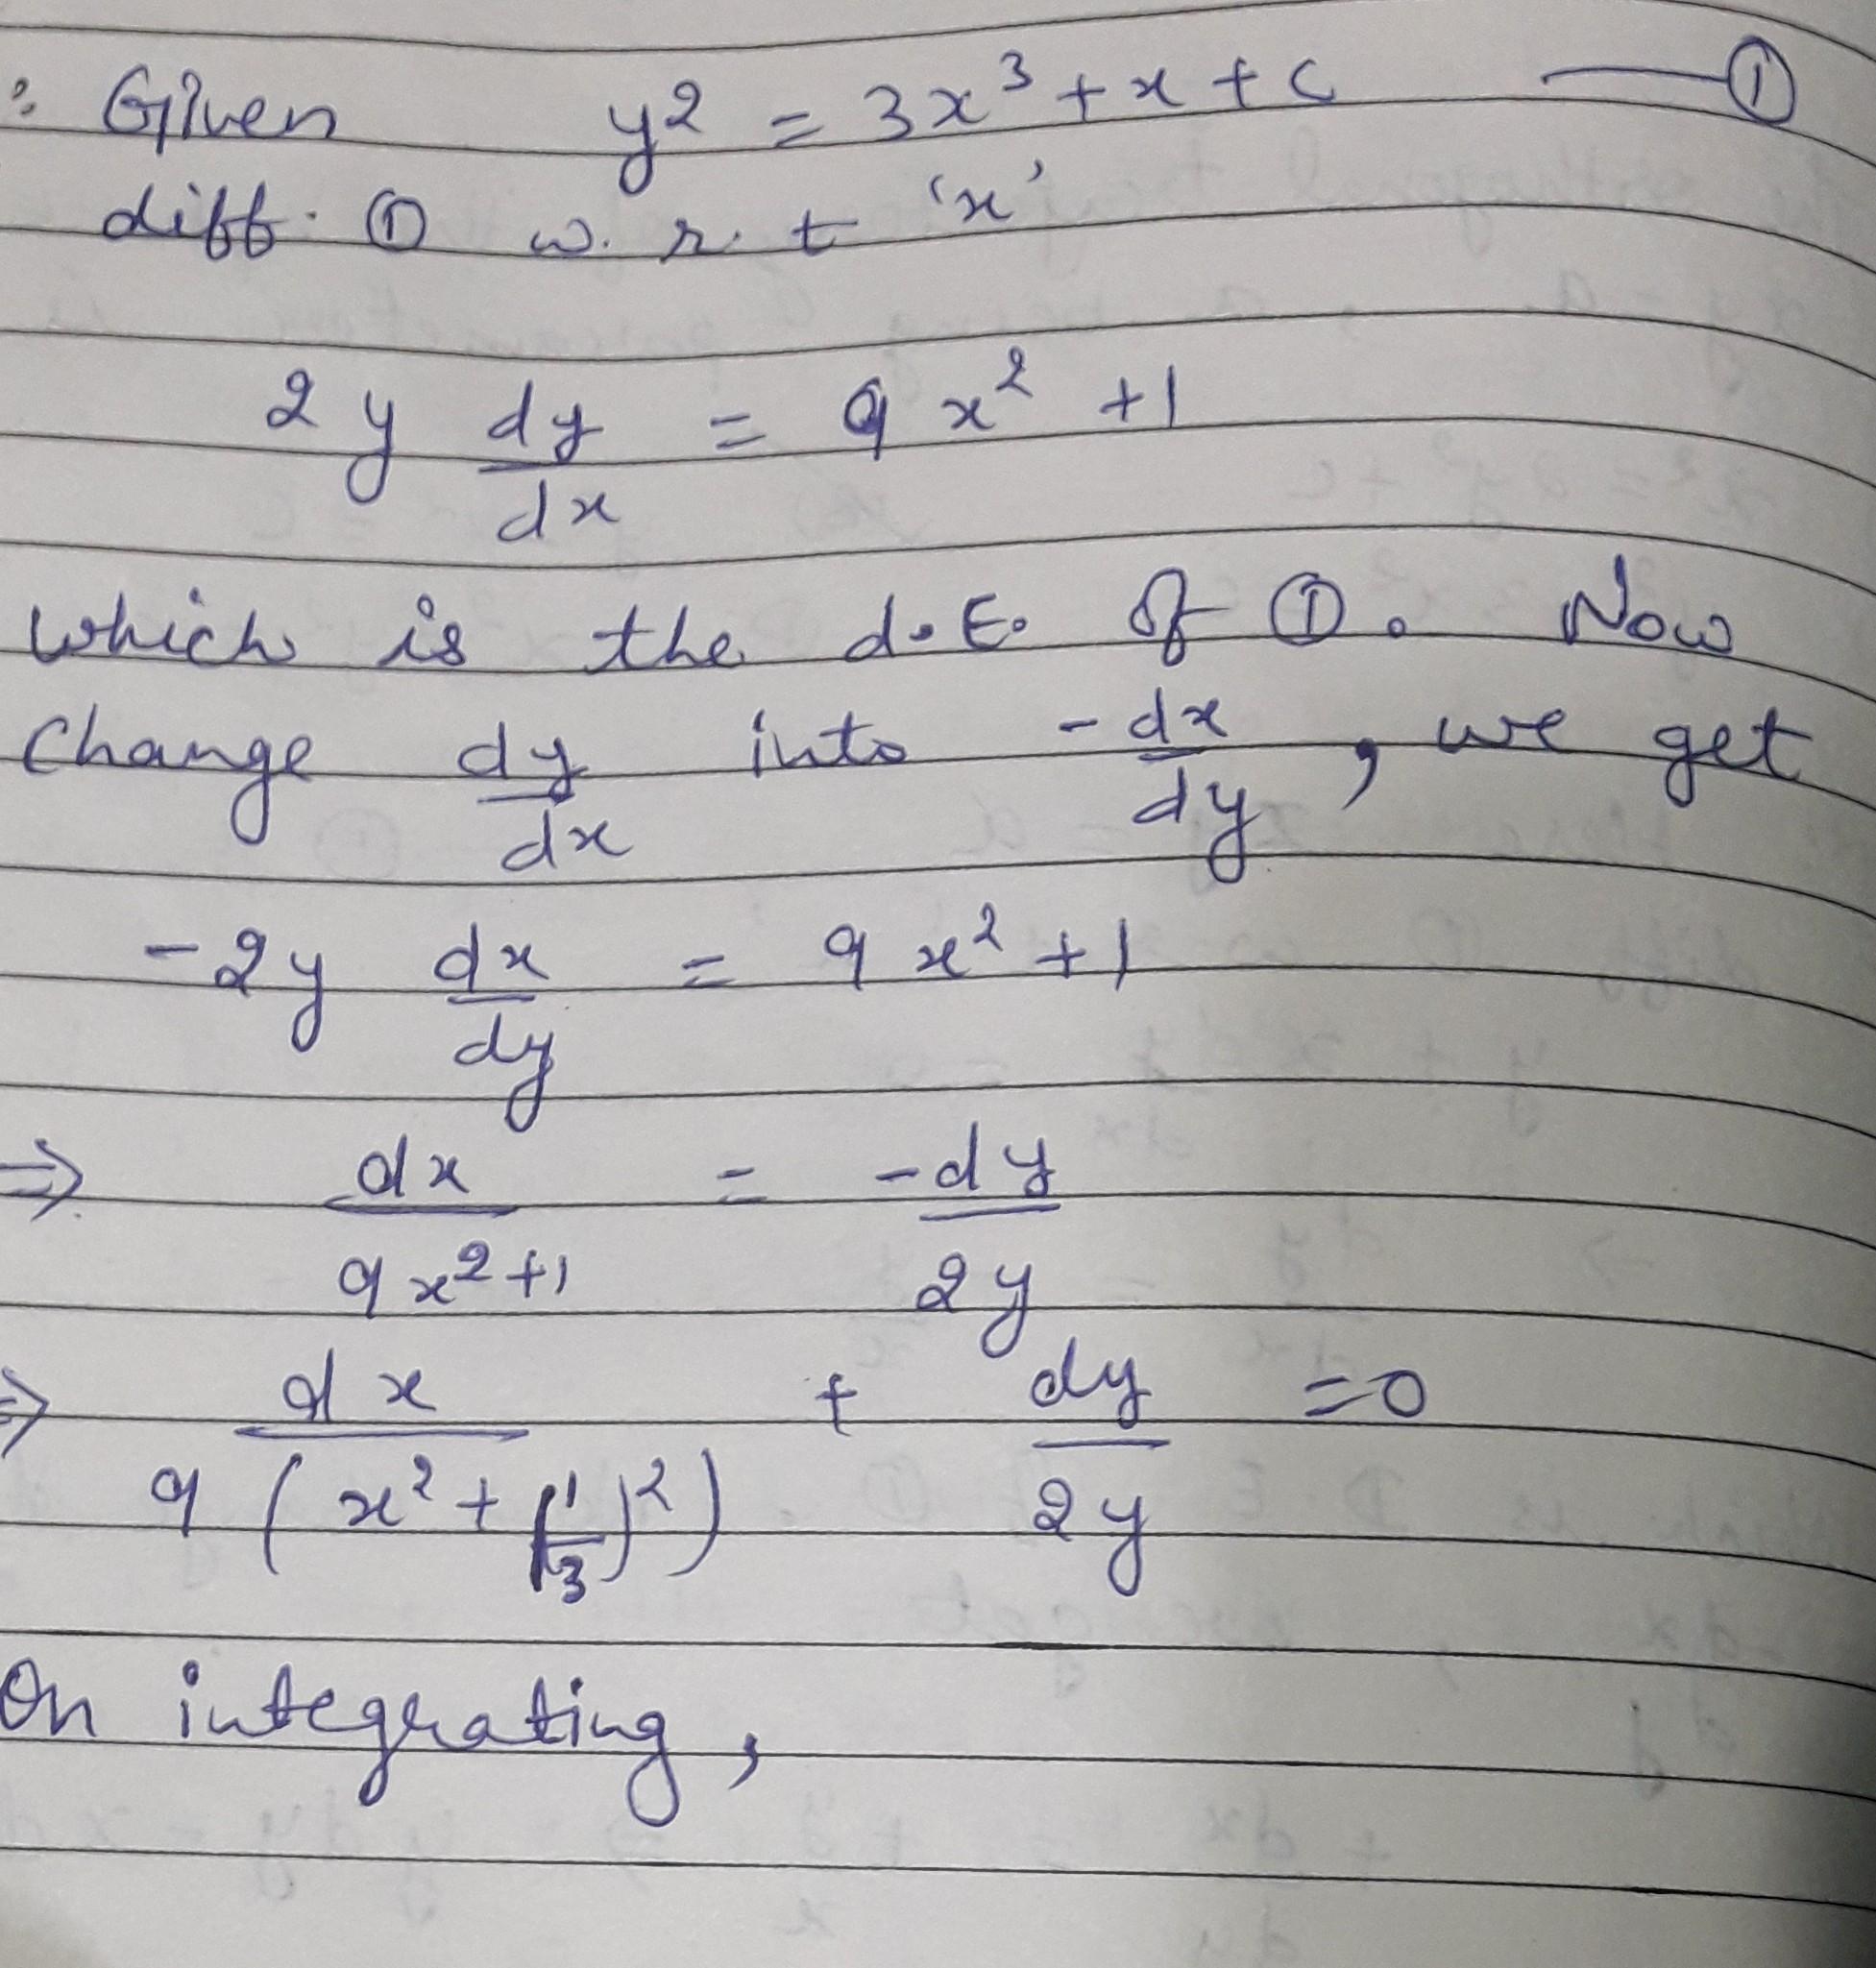 : Given y² = 3x³ + x + c —— ①
diff. ① w. r. t 'x'
2y dy/dx = 9x² + 1
which is the d.E. of ①. Now
change dy/dx into -dx/dy, we get
-2y dx/dy = 9x² + 1
⇒ dx/(9x² + 1) = -dy/2y
⇒ dx/(9(x² + (1/3)²)) + dy/2y = 0
On integrating,